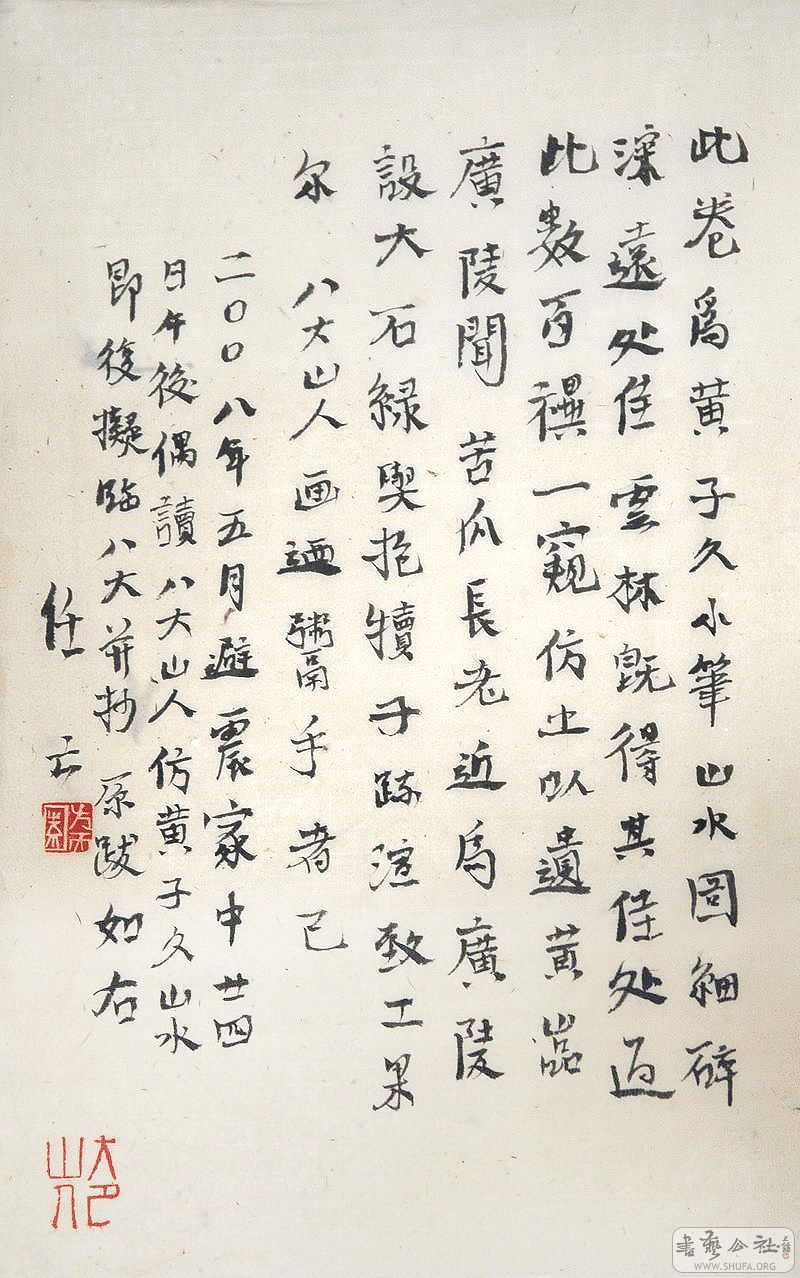 此卷爲黄子久小筆山水圖細碎
深遠处佳雲林既得其佳处過
此數百禩一窺仿之以遺黄嵓
廣陵聞苦瓜長老近爲廣陵
設大石緑與抱犢子疏渲致工果
尔八大山人画迺鬻手者已
二〇〇八年五月避震家中廿四
日午後偶讀八大山人仿黄子久山水
即後擬臨八大并抄原跋如右
任云
書藝公社
WWW.SHUFA.ORG